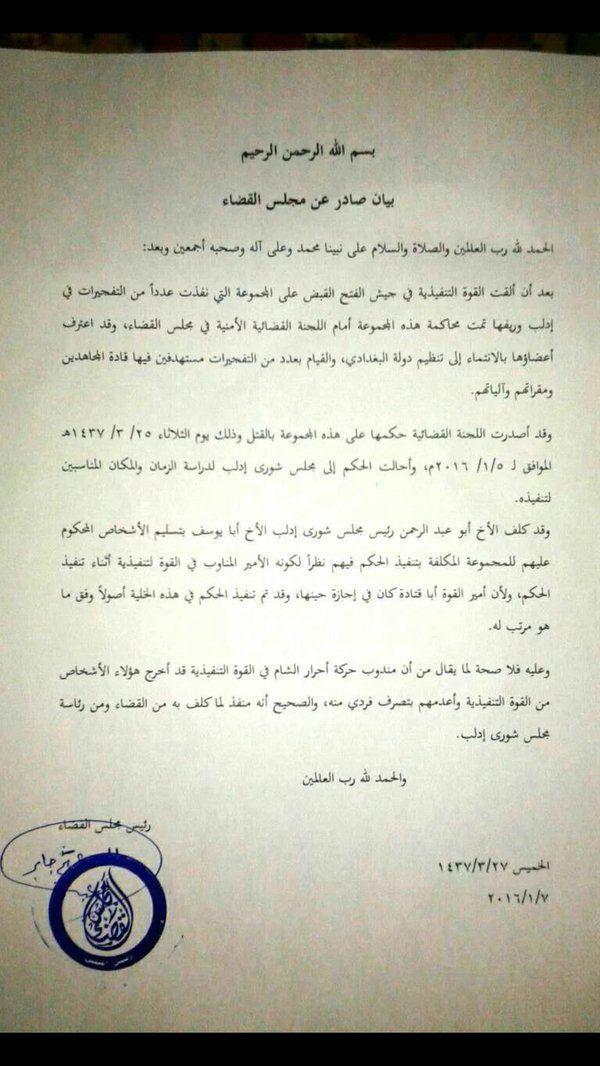 بسم الله الرحمن الرحيم
بيان صادر عن مجلس القضاء
الحمد لله رب العالمين والصلاة والسلام على نبينا محمد وعلى آله وصحبه أجمعين وبعد:
بعد أن ألقت القوة التنفيذية في جيش الفتح القبض على المجموعة التي نفذت عدداً من التفجيرات في
إدلب وريفها تمت محاكمة هذه المجموعة أمام اللجنة القضائية الأمنية في مجلس القضاء، وقد اعترف
أعضاؤها بالانتماء إلى تنظيم دولة البغدادي، والقيام بعدد من التفجيرات مستهدفين فيها قادة المجاهدين
ومقراتهم وآلياتهم.
وقد أصدرت اللجنة القضائية حكمها على هذه المجموعة بالقتل وذلك يوم الثلاثاء ٢٥/ ٣/ ١٤٣٧هـ
الموافق لـ ٥/ ١/ ٢٠١٦م، وأحالت الحكم إلى مجلس شورى إدلب لدراسة الزمان والمكان المناسبين
لتنفيذه.
وقد كلف الأخ أبو عبد الرحمن رئيس مجلس شورى إدلب الأخ أبا يوسف بتسليم الأشخاص المحكوم
عليهم للمجموعة المكلفة بتنفيذ الحكم فيهم نظراً لكونه الأمير المناوب في القوة لتنفيذية أثناء تنفيذ
الحكم، ولأن أمير القوة أبا قتادة كان في إجازة حينها، وقد تم تنفيذ الحكم في هذه الخلية أصولاً وفق ما
هو مرتب له.
وعليه فلا صحة لما يقال من أن مندوب حركة أحرار الشام في القوة التنفيذية قد أخرج هؤلاء الأشخاص
من القوة التنفيذية وأعدمهم بتصرف فردي منه، والصحيح أنه منفذ لما كلف به من القضاء ومن رئاسة
مجلس شورى إدلب.
والحمد لله رب العالمين
رئيس مجلس القضاء
الخميس ١٤٣٧/٣/٢٧
٢٠١٦/١/٧